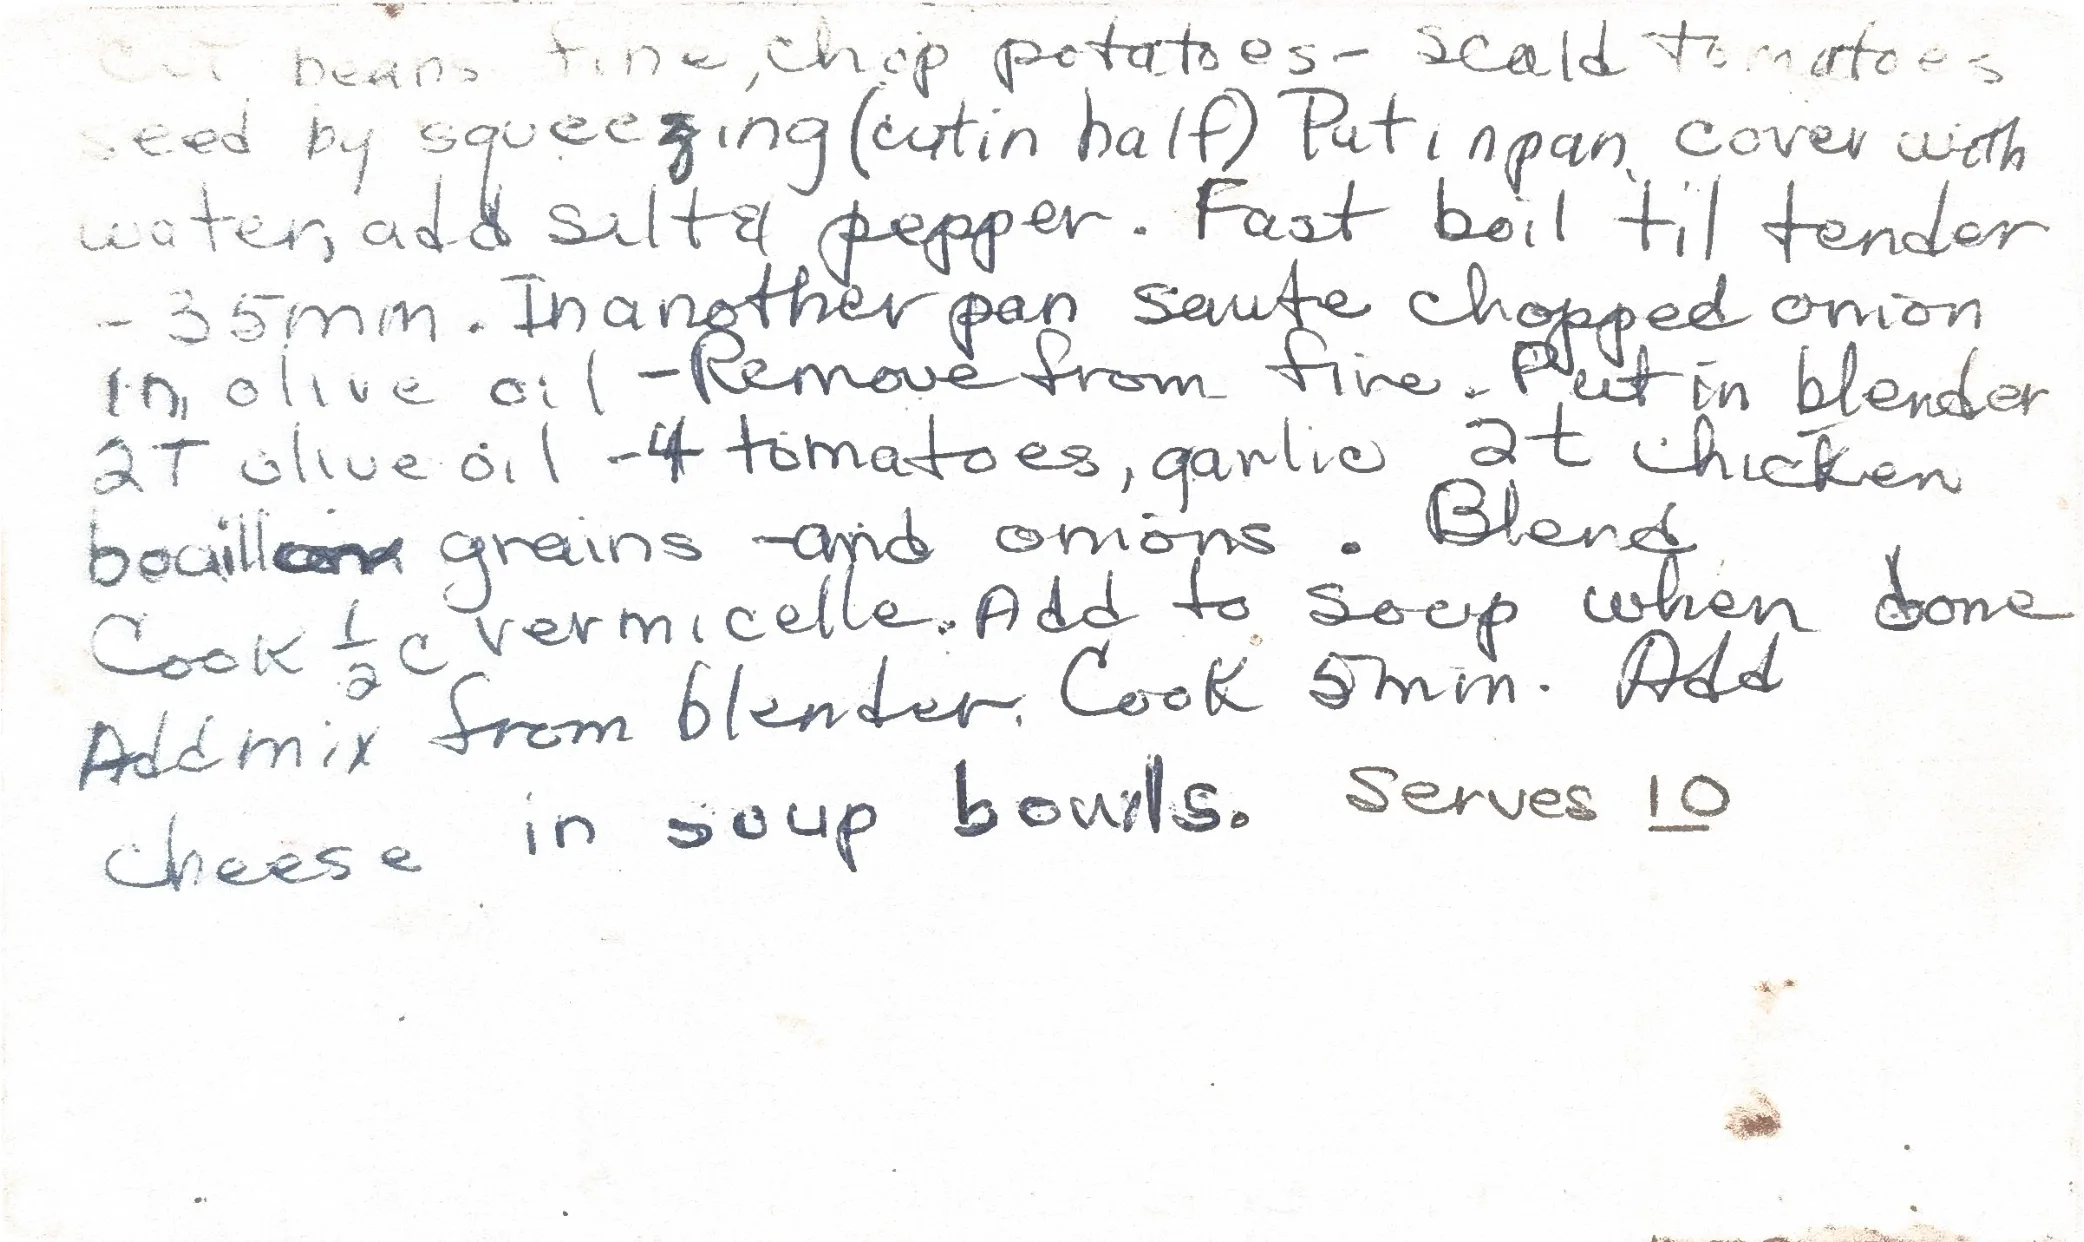 Cut beans fine, chop potatoes - scald tomatoes
seed by squeezing (cut in half) Put in pan, cover with
water, add salt & pepper. Fast boil til tender
- 35 min. In another pan saute chopped onion
in olive oil - Remove from fire. Put in blender
2T olive oil - 4 tomatoes, garlic 2t chicken
bouillon grains - and onions. Blend
Cook 1/2 c vermicelle. Add to soup when done
Add mix from blender. Cook 5 min. Add
cheese in soup bowls. Serves 10